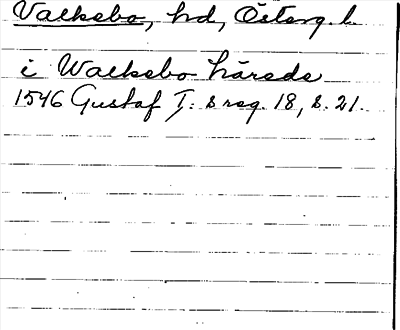 Valkebo, hd, Österg. l.
i Walkebo härade
1546 Gustaf I: s reg. 18, s. 21.